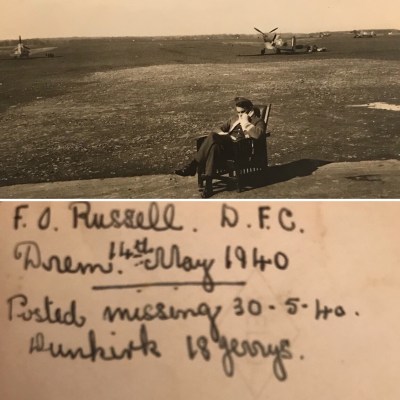 F. O. Russell. D.F.C.
Drem. 14th May 1940
Posted missing 30-5-40.
Dunkirk 18 Jerrys.